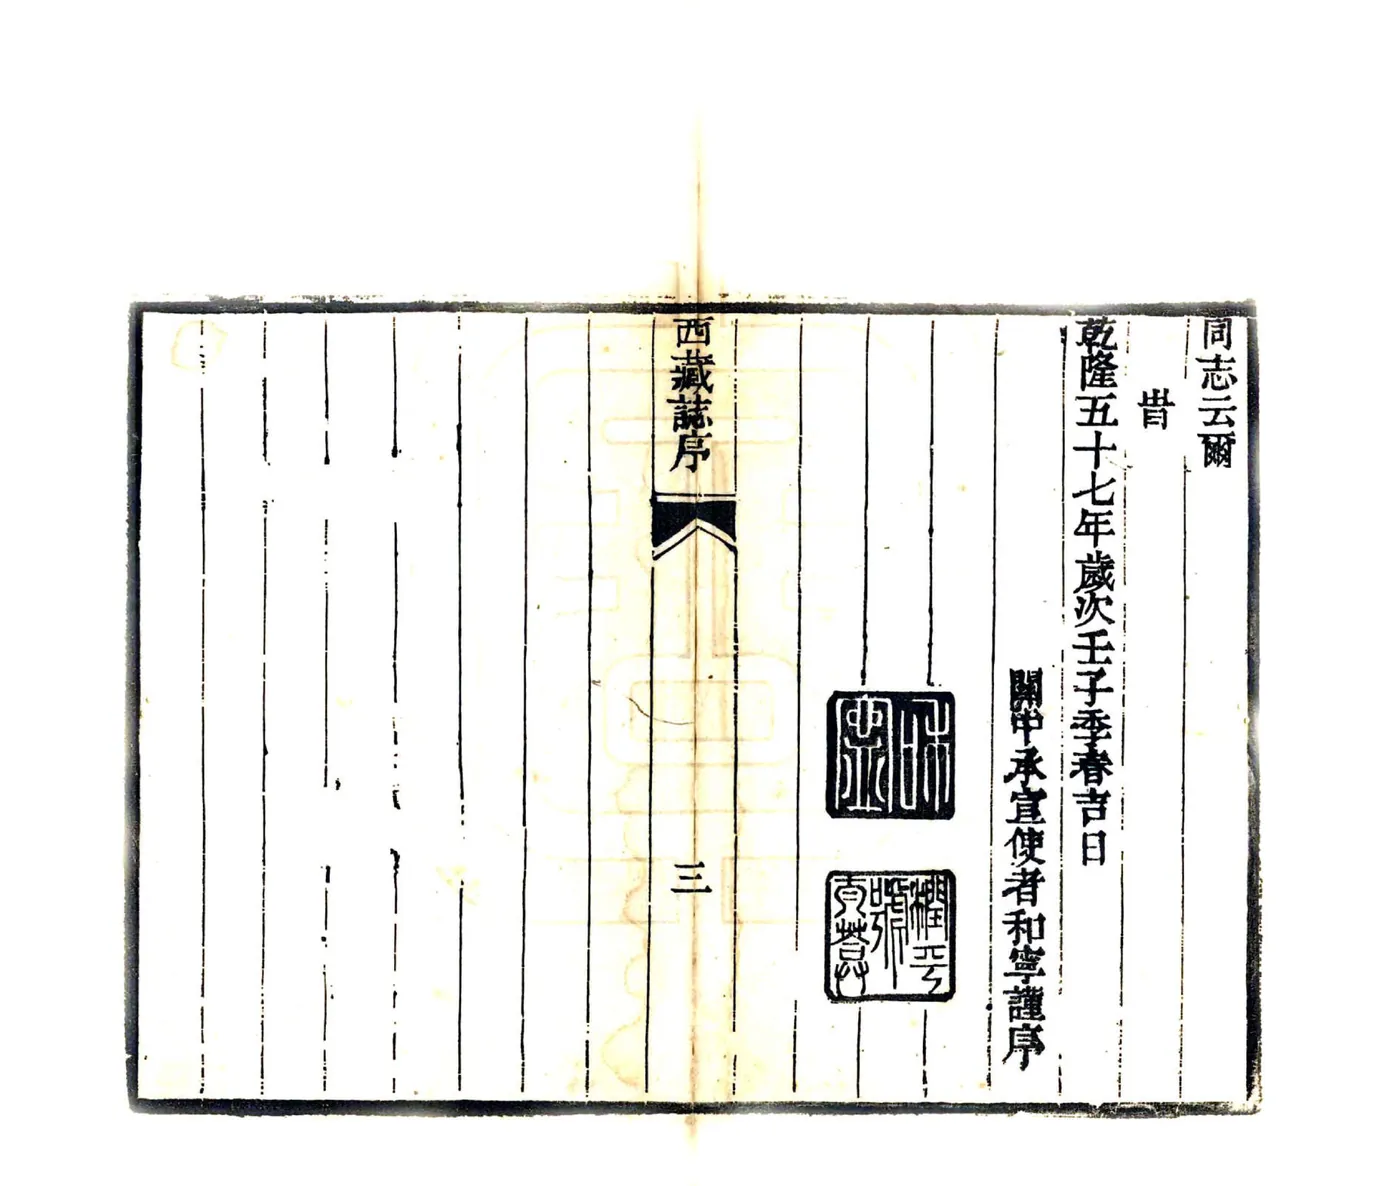 同志云爾
旹
乾隆五十七年歲次壬子季春吉日
關中承宣使者和寧謹序
西藏誌序
三